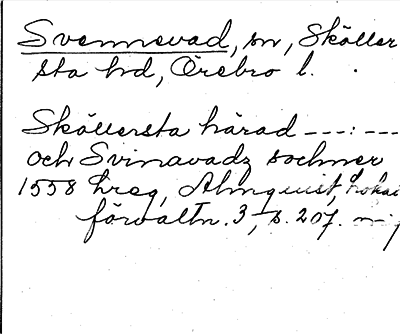 Svennevad, sn, Sköller
sta hd, Örebro l.
Sköllersta härad ---:---
och Svinavadz sochner
1558 hreg, Almquist, Lokal
förvaltn. 3, s. 207.